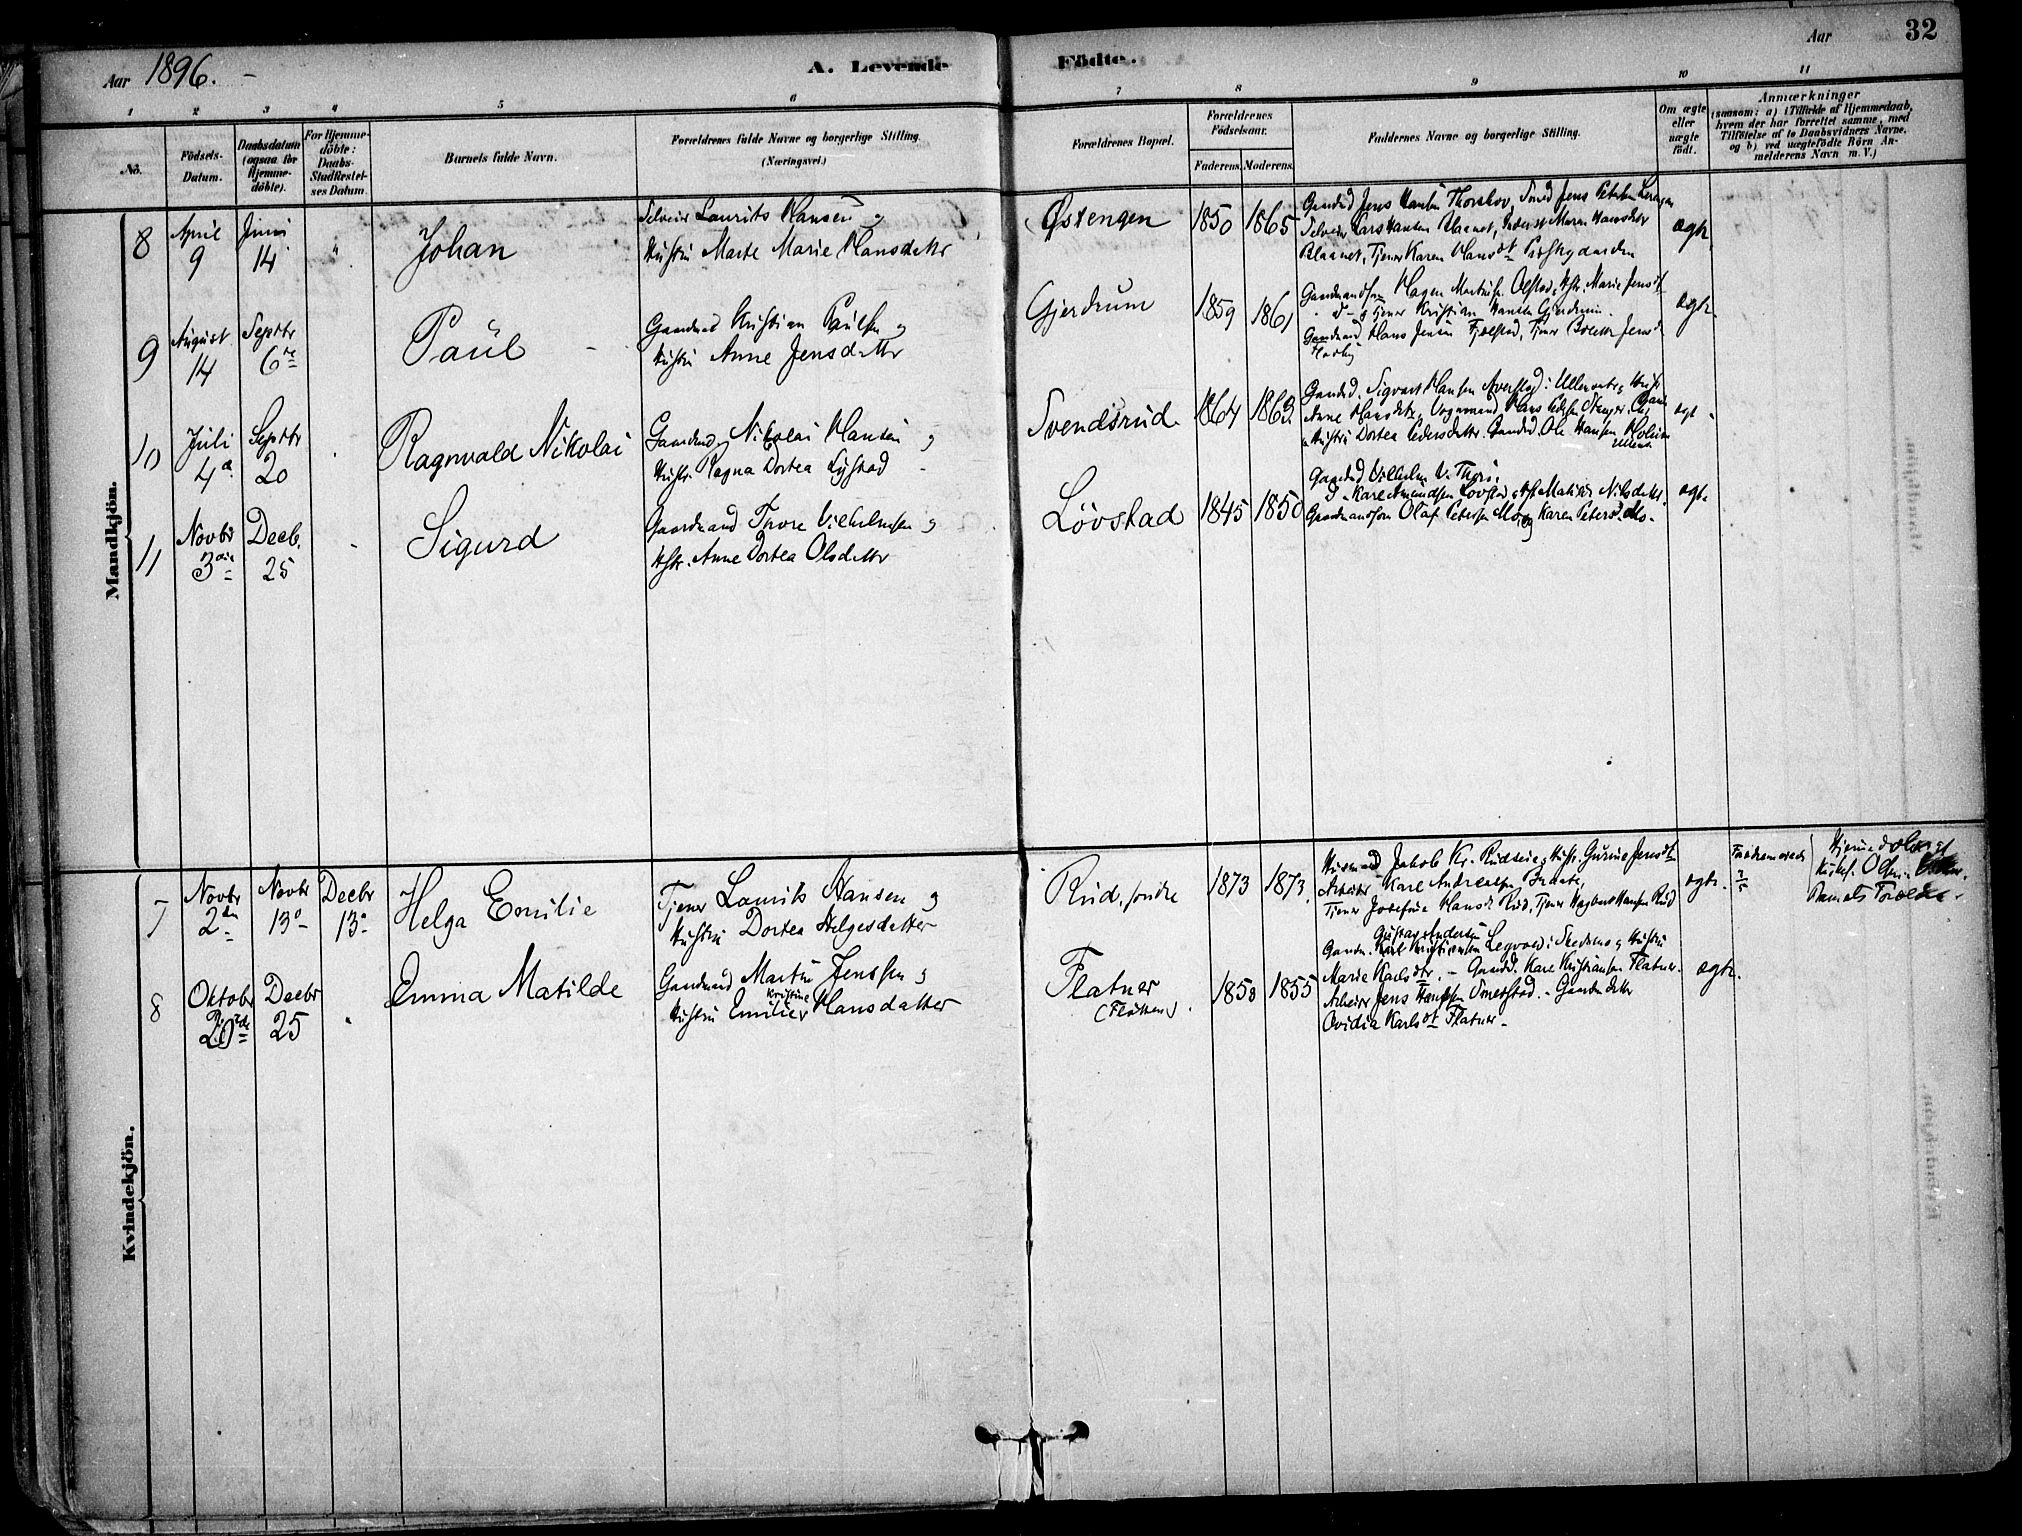 Aar 1896. A. Levende Födte. Aar 32
1 2 3 4 5 6 7 8 9 10 11
No.
Födsels-Datum.
Daabsdatum (ogsaa for Hjemmedöbte).
For Hjemmedöbte: Daabs-Stadfestelses Datum.
Barnets fulde Navn.
Forældrenes fulde Navne og borgerlige Stilling.
(Næringsvei.)
Forældrenes Bopæl.
Forældrenes Födselsaar.
Faderens. Moderens.
Faddernes Navne og borgerlige Stilling.
Om ægte eller uægte födt.
Anmærkninger
(saasom: a) i Tilfælde af Hjemmedaab,
hvem der har forrettet samme, med
Tilföielse af to Daabsvidners Navne,
og b) ved uægtefödte Börn An-
melderens Navn m. V.)
Mandkjön.
8 April 9 Juni 14 " Johan
Selveier Laurits Hansen og
Hustru Marte Marie Hansdatter
Østengen 1850 1865
Gaardmd Jens Hansen Thorshov, Smed Jens Petersen
Selveier Lars Hansen Blaanet, Maren Hansdatter
Blaanet, Tjener Karen Hansdt.
ægte.
9 August 14 Septbr 6te Paul
Gaardmd Kristian Paulsen og
Hustru Anne Jensdatter
Gjerdrum 1859 1861
Gaardmandsøn Hagen Martins. Olstad, Hstr. Marie Jensdt.
Tjener Kristian Hansen Gjerdrum.
Gaardmand Hans Jensen Fjelstad, Tjener Jensd.
ægte.
10 Juli 4de Septbr 20 Ragnvald Nikolai
Gaardmd Nikolai Hansen og
Hustr. Ragna Dortea Lystad
Svendsrud 1864 1863
Gaardmd. Sigvart Hansen i Ullensaker, Hustr.
Anne Hansdtr, Hans Pedersen
Hustru Dortea Pedersdatter. Gaardmd. Ole Hansen Holum
ægte
11 Novbr 3die Decb. 25 Sigurd
Gaardmand Thore Vilhelmsen og
Hstr. Anne Dortea Olsdatter
Løvstad 1845 1850
Gaardmd Vilhelm
Karl Amundsen Lovstad, Hst. Matilde Nilsdatter.
Gaardmandsøn Olaf Petersen Mo og Karen Petersd. Mo.
ægte
Kvindekjön.
7 Novbr 2den Novbr 13. Decbr 13. Helga Emilie
Tjener Laurits Hansen og
Hustru Dortea Helgesdatter
Rud, søndre 1873 1873.
Husmand Jakob Kr. Rudseie, Hustr. Gurine Jensdtr.
Arbeider Karl Andreasen Braate,
Tjener Josefine Hansd. Rud, Tjener Hagbart Hansen Rud
ægte.
Hjemmedøbt af
Barnets Forældre.
8 Oktober 20de Decbr 25 Emma Matilde
Gaardmand Martin Jenssen og
Hustru Emilie Kristine Hansdatter
Flatner
(Fløtten).
1850 1855
Gustav Andersen
Gaardm. Karl Kristiansen Legvold i Skedsmo, Hustru
Marie Karlsdtr. - Gaardmd. Karl Kristiansen Flatner.
Arbeider Jens Hansen Smestad. - Gaardm.datter
Ovidia Karlsdt. Flatner.
ægte.